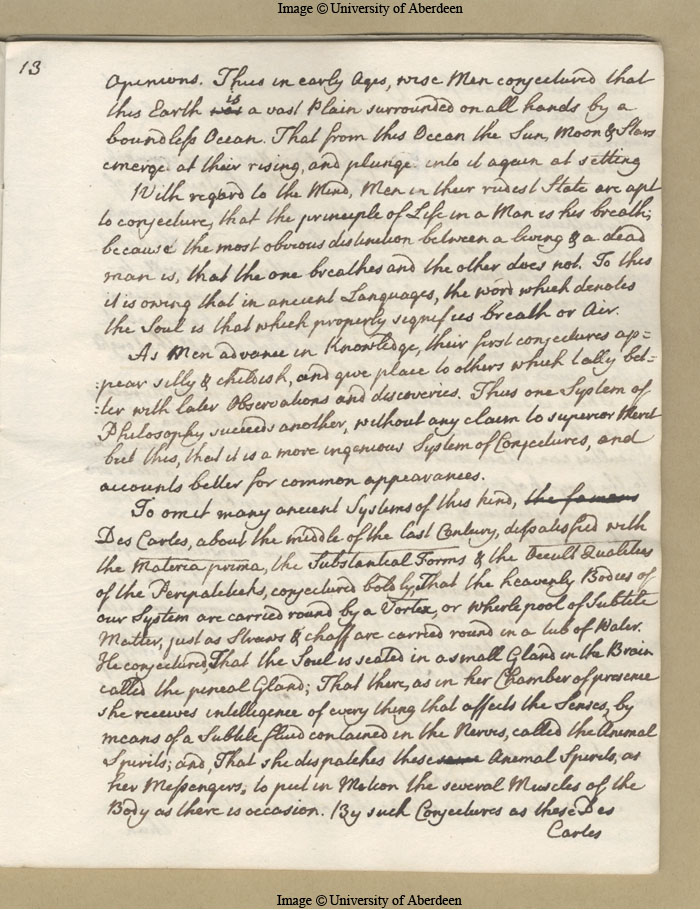 Image © University of Aberdeen
13
opinions. Thus in early Ages, wise Men conjectured that
this Earth was is a vast Plain surrounded on all hands by a
boundless Ocean. That from this Ocean the Sun, Moon & Stars
emerge at their rising, and plunge into it again at setting
With regard to the Mind, Men in their rudest State are apt
to conjecture, that the principle of Life in a Man is his breath;
because the most obvious distinction between a living & a dead
man is, that the one breathes and the other does not. To this
it is owing that in ancient Languages, the word which denotes
the Soul is that which properly signifies breath or Air.
As Men advance in Knowledge, their first conjectures ap=
=pear silly & childish, and give place to others which tally bet=
=ter with later Observations and discoveries. Thus one System of
Philosophy succeeds another, without any claim to superior Merit
but this, that it is a more ingenious System of Conjectures, and
accounts better for common appearances.
To omit many ancient Systems of this kind, the famous
Des Cartes, about the middle of the last Century, dissatisfied with
the Materia prima, the Substantial Forms & the Occult Qualities
of the Peripateticks, conjectured boldly, That the heavenly Bodies of
our System are carried round by a Vortex, or whirlepool of Subtile
Matter, just as Straws & chaff are carried round in a tub of Water.
He conjectured, That the Soul is seated in a small Gland in the Brain
called the pineal Gland; That there, as in her Chamber of presence
she receives intelligence of every thing that affects the Senses, by
means of a Subtile fluid contained in the Nerves, called the Animal
Spirits; and, That she dispatches these Animal Spirits, as
her Messengers, to put in Motion the several Muscles of the
Body as there is occasion. By such Conjectures as these Des
Cartes
Image © University of Aberdeen